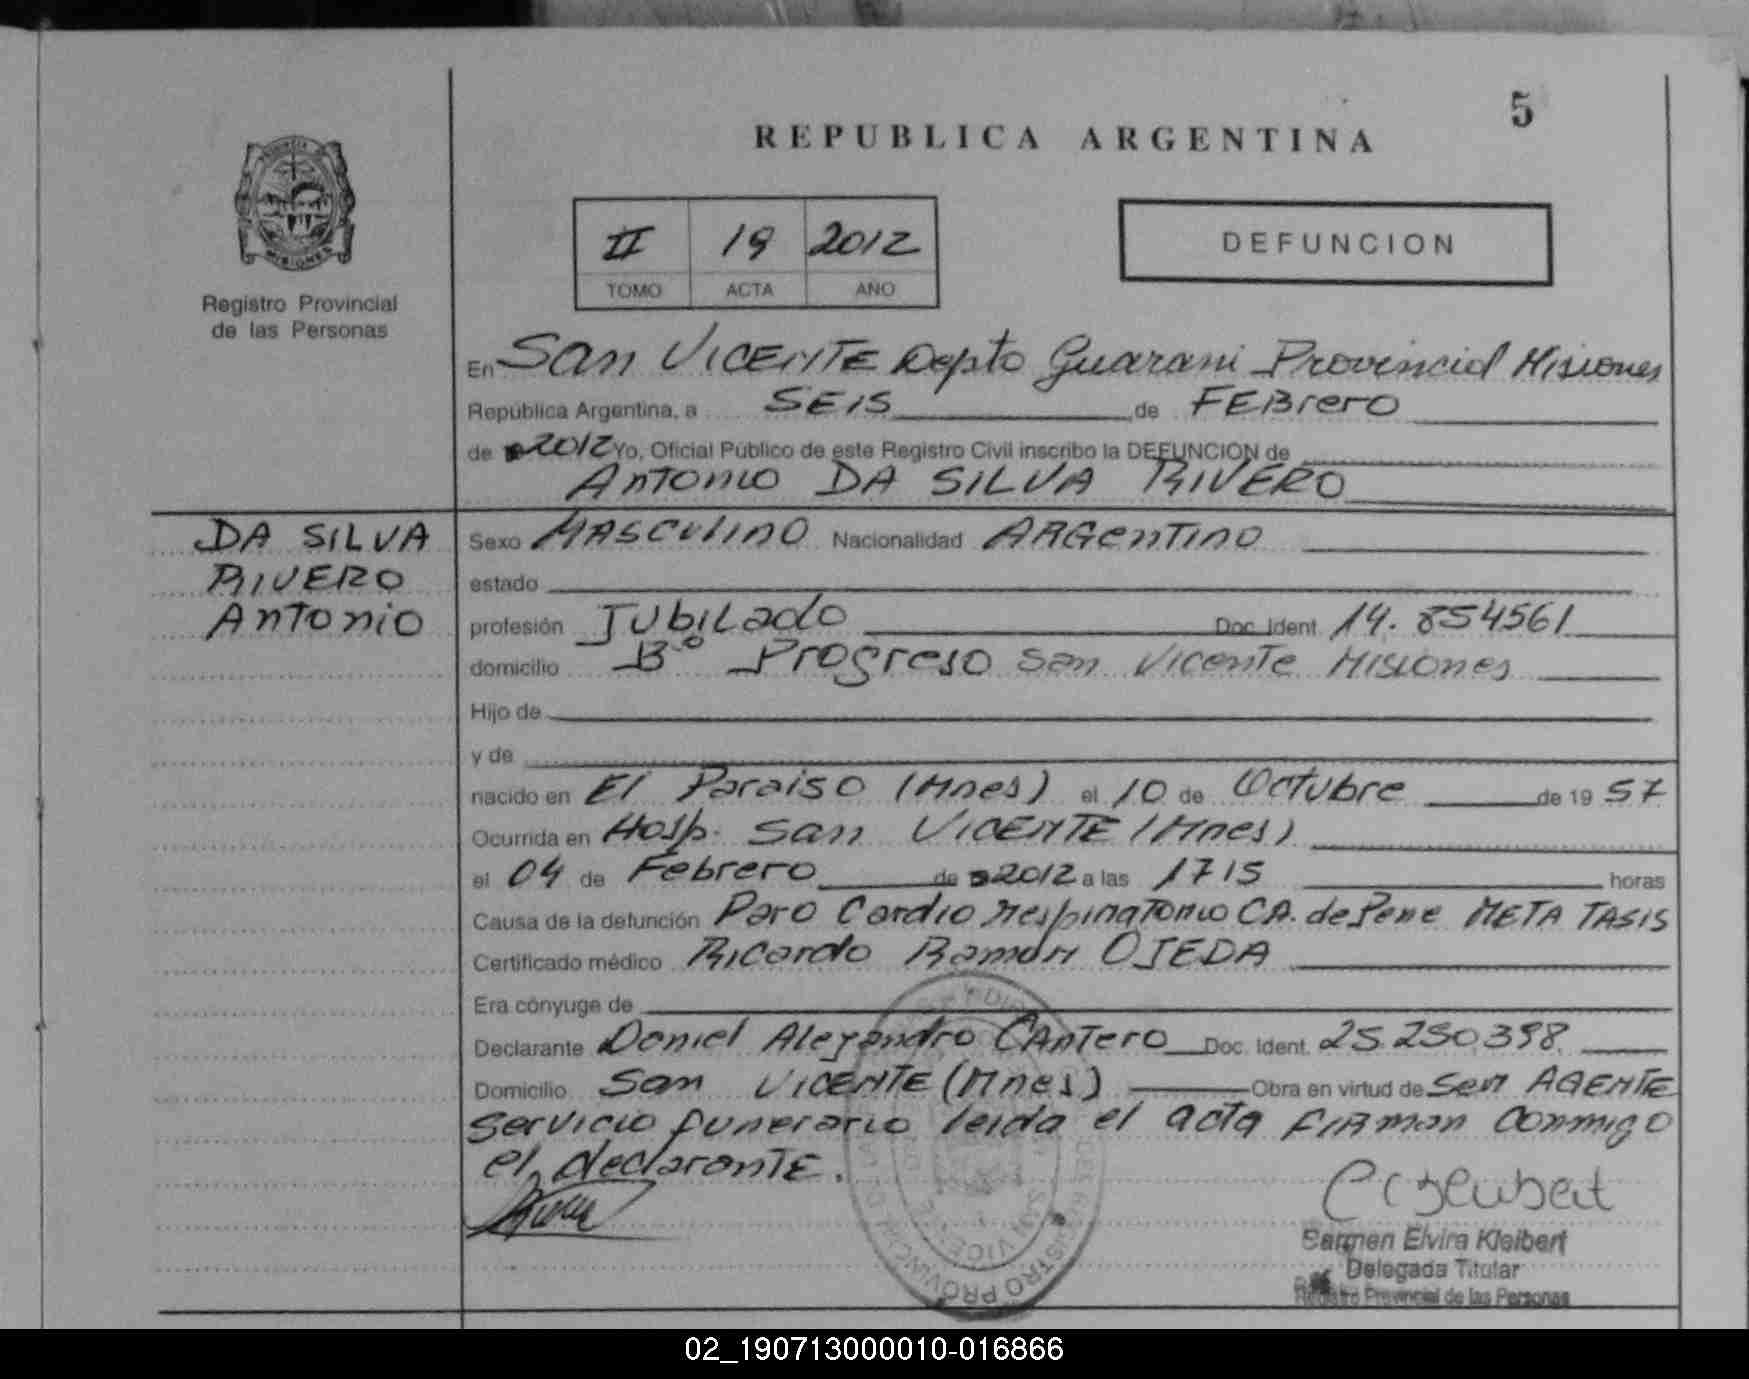 5
REPUBLICA ARGENTINA
II 19 2012
TOMO ACTA AÑO
DEFUNCION
MISIONES
Registro Provincial
de las Personas
En San VICENTE Depto Guarani Provincia Misiones
República Argentina, a SEIS de FEBrero
de 2012 Yo, Oficial Público de este Registro Civil inscribo la DEFUNCION de
Antonio DA SILVA RIVERO
DA SILVA
RIVERO
Antonio
Sexo MASCulino Nacionalidad ARGentino
estado
profesión JUbiLado Doc. Ident. 14.854561
domicilio Bº Progreso San Vicente Misiones
Hijo de
y de
nacido en El Paraiso (Mnes) el 10 de Octubre de 19 57
Ocurrida en Hosp. San VICENTE (Mnes)
el 04 de Febrero de 2012 a las 1715 horas
Causa de la defunción Paro Cardio respiratorio CA. de Pene META TASIS
Certificado médico Ricardo Ramon OJEDA
Era cónyuge de
Declarante Daniel Alejandro CAntero Doc. Ident. 25.250.398
Domicilio San VICENTE (Mnes) Obra en virtud de Ser AGENTE
Servicio funerario leida el acta FIRman Conmigo
el declarante.
Carmen Elvira Kleibert
Delegada Titular
Registro Provincial de las Personas
02_190713000010-016866